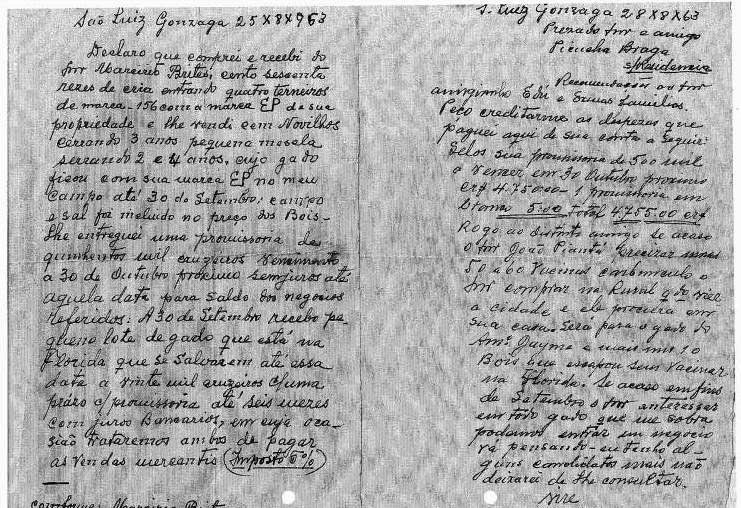 São Luiz Gonzaga 25X8X963
Declaro que comprei e recebi do
Snr Mareirio Brites, cento sessenta
rezes de cria entrando quatro terneiros
de marca - 156 com a marca EP de sua
propriedade e lhe vendi cem Novilhos
cerrando 3 anos pequena
serrando 2 e 4 años, cujo gado
ficou com sua marca EP no meu
campo até 30 de Setembro; campo
e sal foi incluido no preço dos Bois-
lhe entreguei uma promissoria de
quinhentos mil cruzeiros vencimento
a 30 de Outubro proximo sem juros até
aquela data para saldo dos negocios
referidos: A 30 de Setembro recebo pe-
queno lote de gado que está na
Florida que se salvarem até essa
data a vinte mil cruzeiros c/uma
prazo c/promissoria até seis mezes
com juros Bancarios, em cuja oca-
sião trataremos ambos de pagar
as vendas mercantis (Imposto 6%)
S. Luiz Gonzaga 28X8X63
Prezado Snr e amigo
Picucha Braga
s/Residencia
Recomendações ao Snr
amiguinho Edú e Exmas familias.
Peço creditarme as despezas que
paguei aqui de sua conta a seguir:
Selos sua promissoria de 500 mil
a vencer em 30 Outubro proximo
cr$ 4.750.00 - 1 promissoria em
5.00 total 4.755.00 cr$
Rogo ao distinto amigo se acaso
o Snr João Piantá precizar mais
50 a 60 Vacinas o
Snr comprar na Rural qdo vier
a cidade e ele procura em
sua casa. Sera para o gado do
Amº Jayme e mais uns 10
Bois que escapou sem Vacinar
na Florida. Se acaso em fins
de Setembro o Snr interessar
em todo gado que me sobra
podemos entrar em negocio
vá pensando - eu tenho al-
guns candidatos mais não
deixarei de lhe consultar.
vire